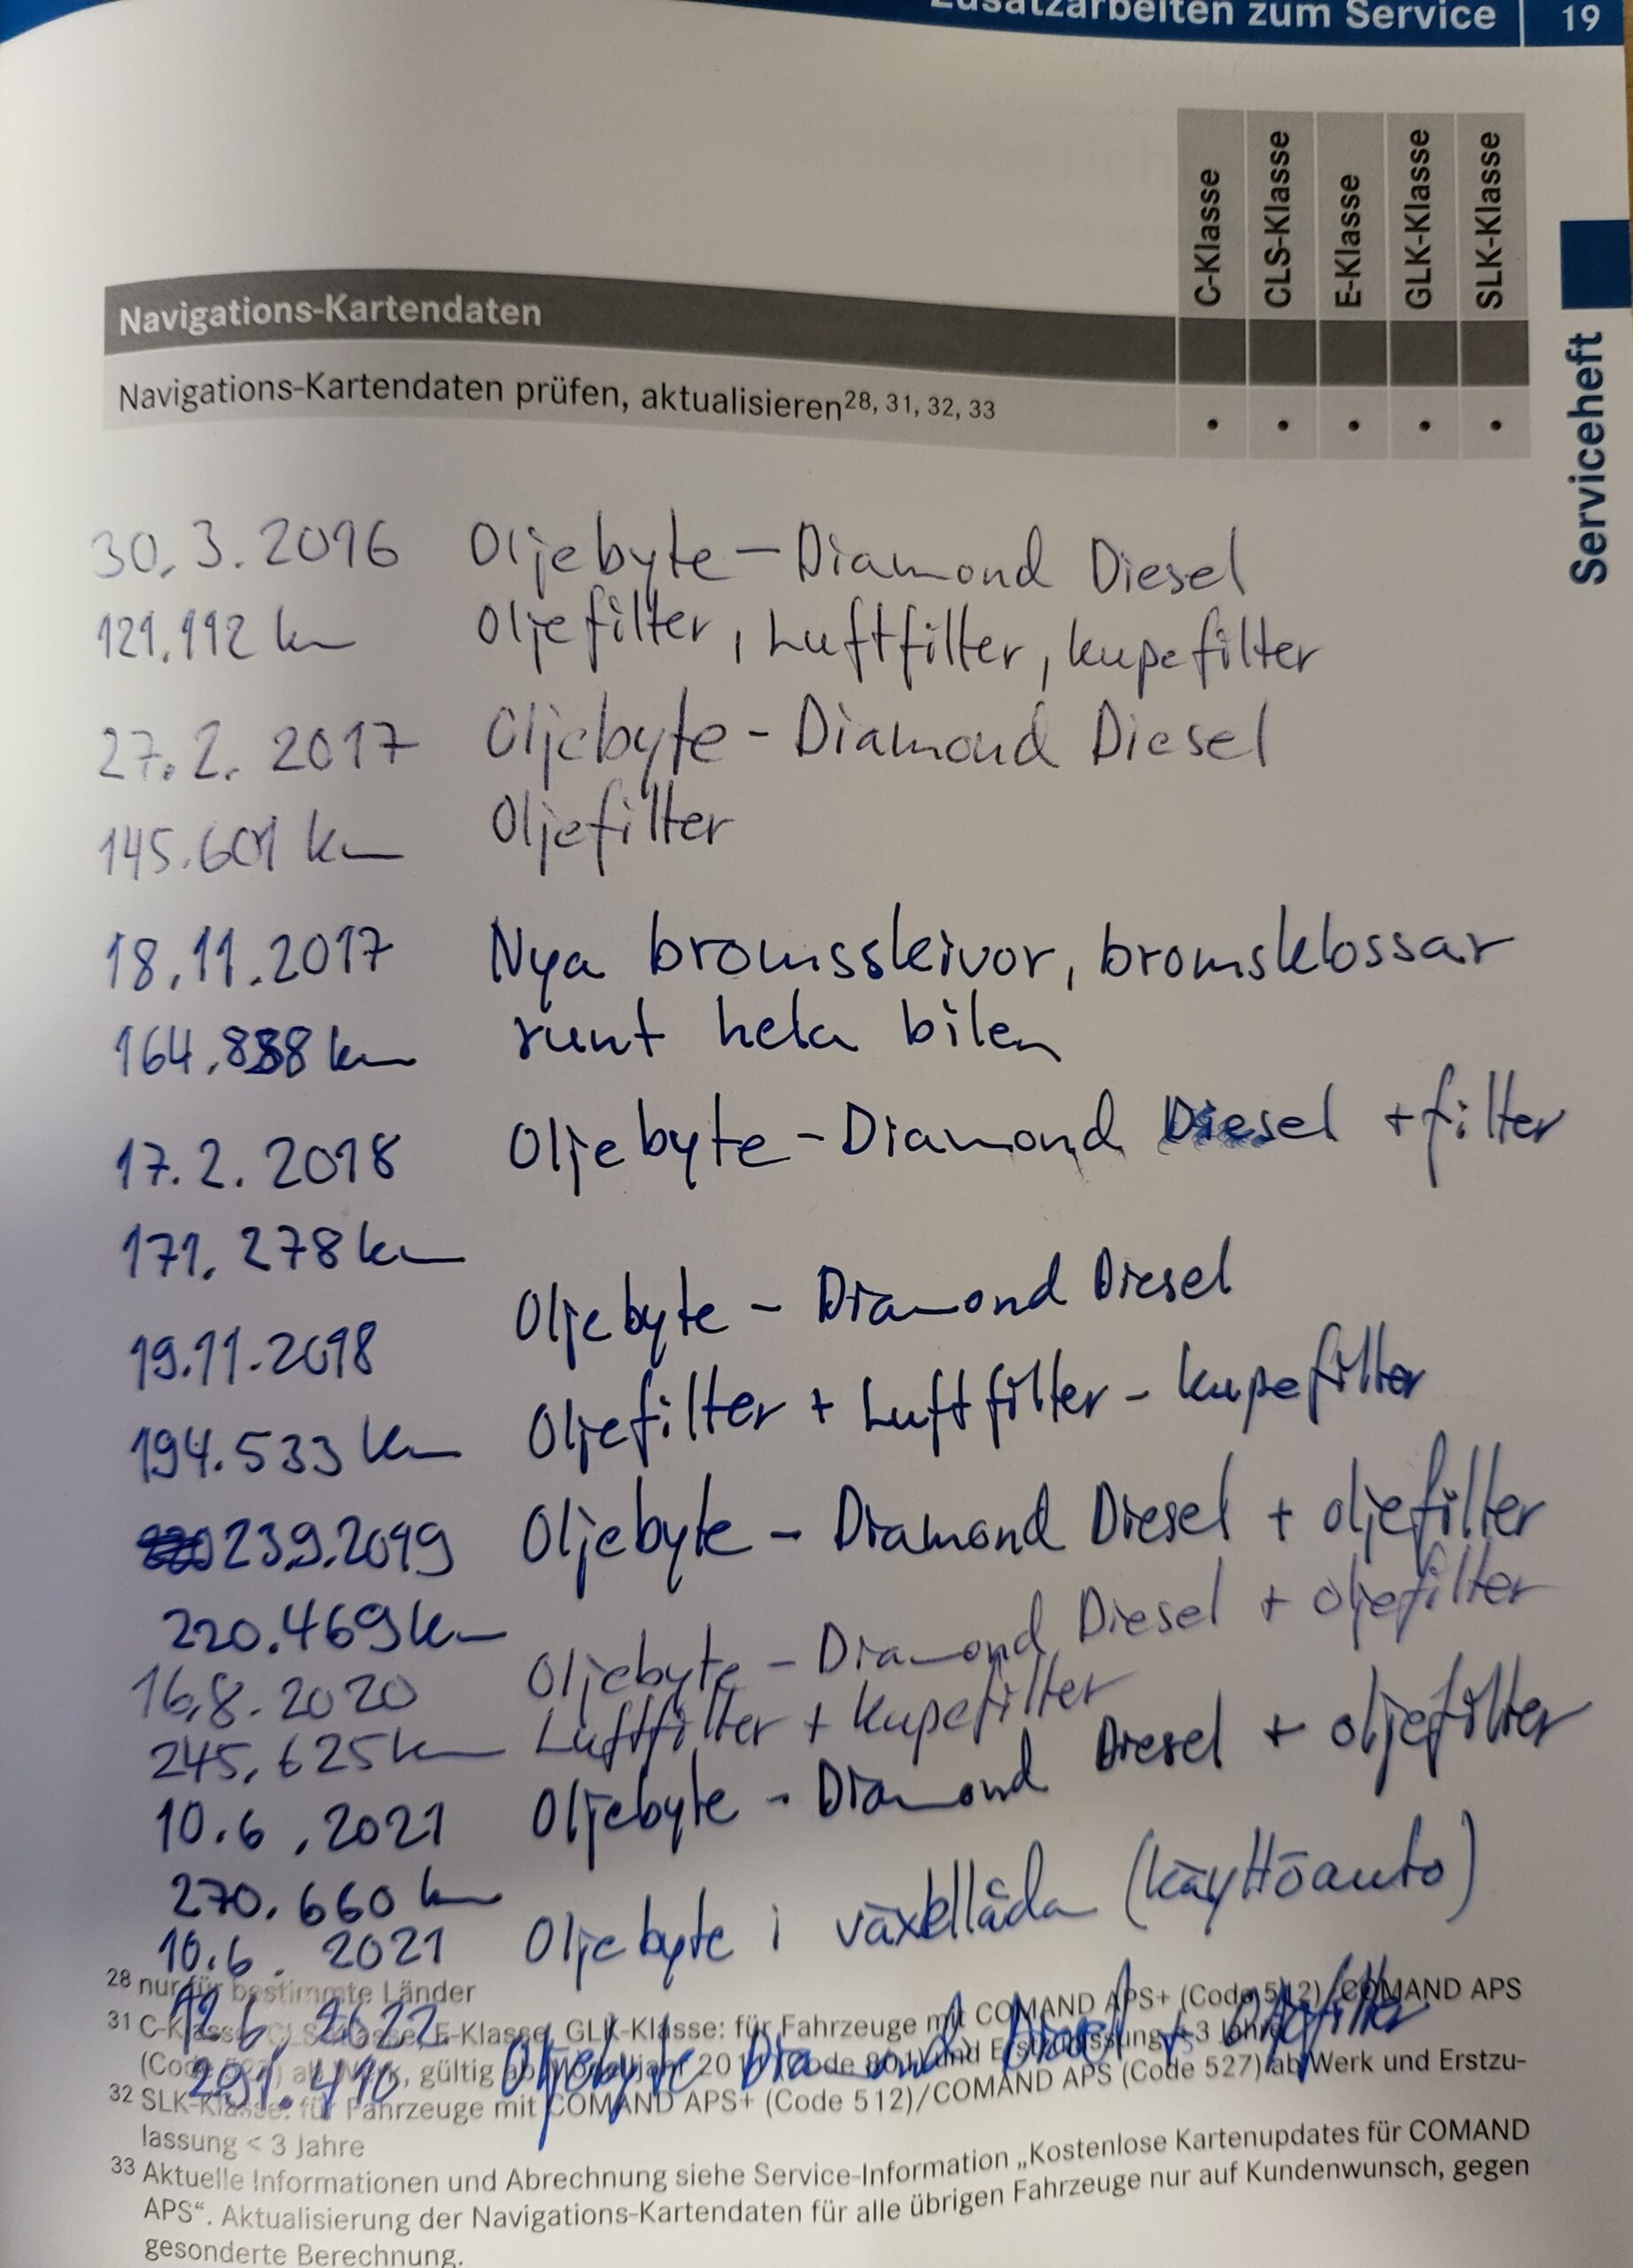 Zusatzarbeiten zum Service 19
C-Klasse
CLS-Klasse
E-Klasse
GLK-Klasse
SLK-Klasse
Serviceheft
Navigations-Kartendaten
Navigations-Kartendaten prüfen, aktualisieren28, 31, 32, 33 • • • • •
30.3.2016 Oljebyte - Diamond Diesel
121.112 km Oljefilter, Luftfilter, kupefilter
27.2.2017 Oljebyte - Diamond Diesel
145.601 km Oljefilter
18.11.2017 Nya bromsskivor, bromsklossar
164.838 km runt hela bilen
17.2.2018 Oljebyte - Diamond Diesel + filter
171.278 km
19.11.2018 Oljebyte - Diamond Diesel
194.533 km Oljefilter + Luftfilter - kupefilter
23.9.2019 Oljebyte - Diamond Diesel + oljefilter
220.469 km
16.8.2020 Oljebyte - Diamond Diesel + oljefilter
245.625 km Luftfilter + kupefilter
10.6.2021 Oljebyte - Diamond Diesel + oljefilter
270.660 km
10.6.2021 Oljebyte i växellåda (käyttöauto)
12.6.2022 Oljebyte Diamond Diesel + oljefilter
291.410
28 nur für bestimmte Länder
31 C-Klasse, CLS-Klasse, E-Klasse, GLK-Klasse: für Fahrzeuge mit COMAND APS+ (Code 512)/COMAND APS
(Code 527) ab Werk, gültig ab und Erstzulassung < 3 Jahre
32 SLK-Klasse: für Fahrzeuge mit COMAND APS+ (Code 512)/COMAND APS (Code 527) ab Werk und Erstzu-
lassung < 3 Jahre
33 Aktuelle Informationen und Abrechnung siehe Service-Information „Kostenlose Kartenupdates für COMAND
APS“. Aktualisierung der Navigations-Kartendaten für alle übrigen Fahrzeuge nur auf Kundenwunsch, gegen
gesonderte Berechnung.